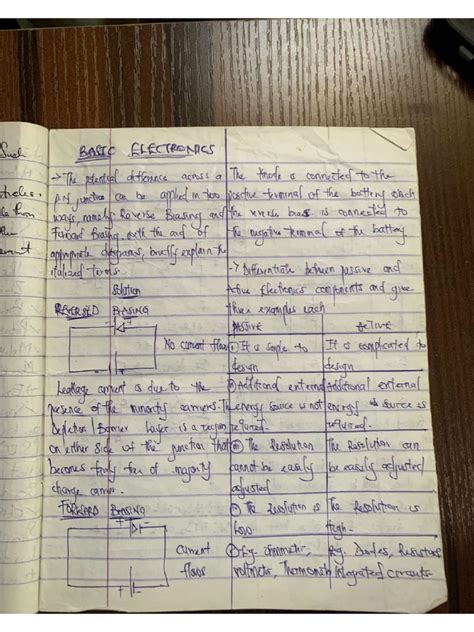 BASIC ELECTRONICS
→ The potential difference across a
P.N junction can be applied in two
ways, namely Reverse Biasing and
Forward Biasing. with the aid of
appropriate diagrams, briefly explain the
italized terms.
Solution
REVERSED BIASING
No current flow
Leakage current is due to the
presence of the minority carriers. The
Depletion / Barrier layer is a region
on either side of the junction that
becomes fairly free of majority
charge carrier.
FORWARD BIASING
+ -
Current
flows
+ -
The is connected to the
positive terminal of the battery which
the reverse bias is connected to
the negative terminal of the battery.
→ Differentiate between passive and
Active Electronics components and give
five examples each
PASSIVE
ACTIVE
① It is simple to
design
It is complicated to
design
② Additional external
energy source is not
required.
Additional external
energy source is
required.
③ The Resolution
cannot be easily
adjusted
The Resolution can
be easily adjusted
④ The Resolution is
Low.
The Resolution is
High.
⑤ E.g.
voltmeter,
E.g. Diodes, Resistors
Integrated circuits